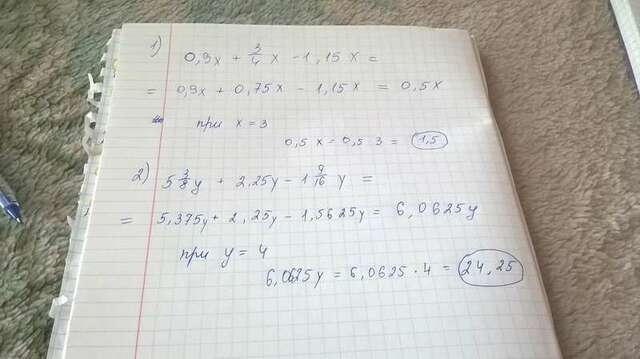 1) 0,9x + 3/4 x - 1,15x =
= 0,9x + 0,75x - 1,15x = 0,5x
при x = 3
0,5x = 0,5 · 3 = 1,5
2) 5 3/8 y + 2,25y - 1 9/16 y =
= 5,375y + 2,25y - 1,5625y = 6,0625y
при y = 4
6,0625y = 6,0625 · 4 = 24,25